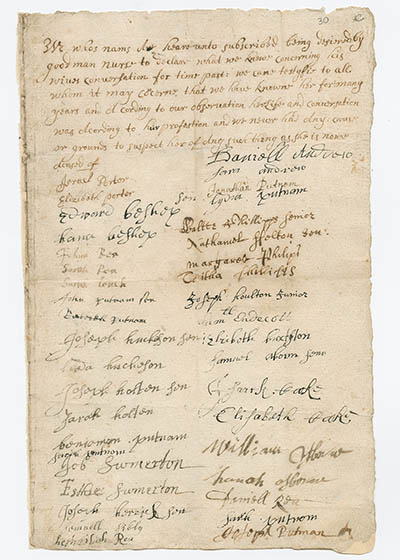 30
We whos nams Ar heareunto subscribed being desired by
goodman nurse to declare what we knewe concerning his
wives conversation for time past: we cane testyfie to all
whom it may cocerne that we have knowne her for many
years and Acording to our observation her life and conversation
was Acording to her profestion and we never had Any cause
or grounds to suspect her of Any such thing as she is nowe
Acused of
Israel Porter
Elizibeth porter
Edward beshep sen
hana beshep
Joshua Rea
Sarah Rea
Sarah leach
John Putnam sen
Rebeck putnam
Joseph huchison sen
Lida huchison
Joseph holten sen
Sarah holten
benjamin putnam
sarah putnam
Job Swinerton
Esther Swinerton
Joseph herrick sen
Samuell Sibly
hephzibah Rea
Daniell Andrew
Sara andrew
Jonathan Putnam
Lydia putnam
Walter Phillips senior
Nathaniel Felton sen:
margaret Philips
Tabitha Phillips
Joseph Houlton Junior
Samll Endecott
Elisbeth buxston
Samuel aborn seno
Isaack Cooke
Elisabeth Cooke
William Osborne
hanah osborne
Daniell Rea
Sarah putnam
Joseph Putman